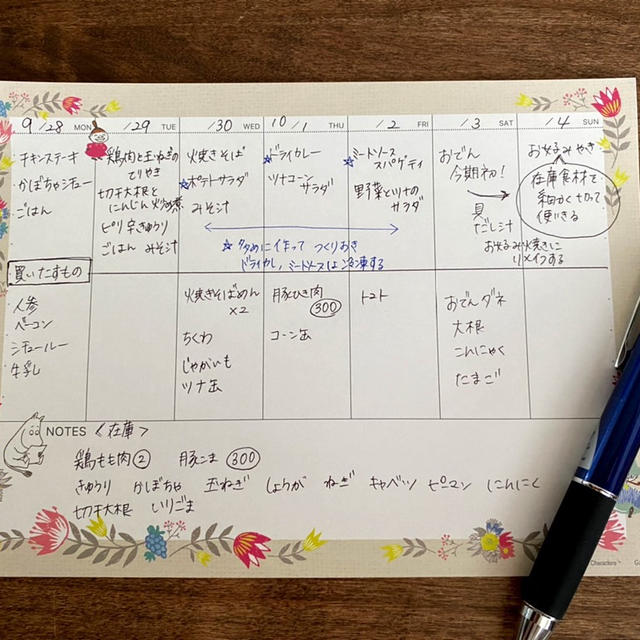 9/28 MON /29 TUE /30 WED 10/1 THU /2 FRI /3 SAT /4 SUN
チキンステーキ
かぼちゃシチュー
ごはん
鶏肉と玉ねぎの
てりやき
切干大根と
にんじん炒め煮
ピリ辛きゅうり
ごはん みそ汁
焼きそば
☆ポテトサラダ
みそ汁
☆ドライカレー
ツナコーン
サラダ
☆ミートソース
スパゲティ
野菜とツナの
サラダ
おでん
今期初!
→
具
だし汁
お好み焼きに
リメイクする
お好みやき
在庫食材で
細かく切って
使いきる
☆多めに作って つくりおき
ドライカレー、ミートソースは冷凍する
買いたすもの
人参
ベーコン
シチュールー
牛乳
焼きそばめん
×2
ちくわ
じゃがいも
ツナ缶
豚ひき肉
300
コーン缶
トマト
おでんダネ
大根
こんにゃく
たまご
NOTES <在庫>
鶏もも肉② 豚こま 300
きゅうり かぼちゃ 玉ねぎ しょうが ねぎ キャベツ ピーマン にんにく
切干大根 いりごま
Characters